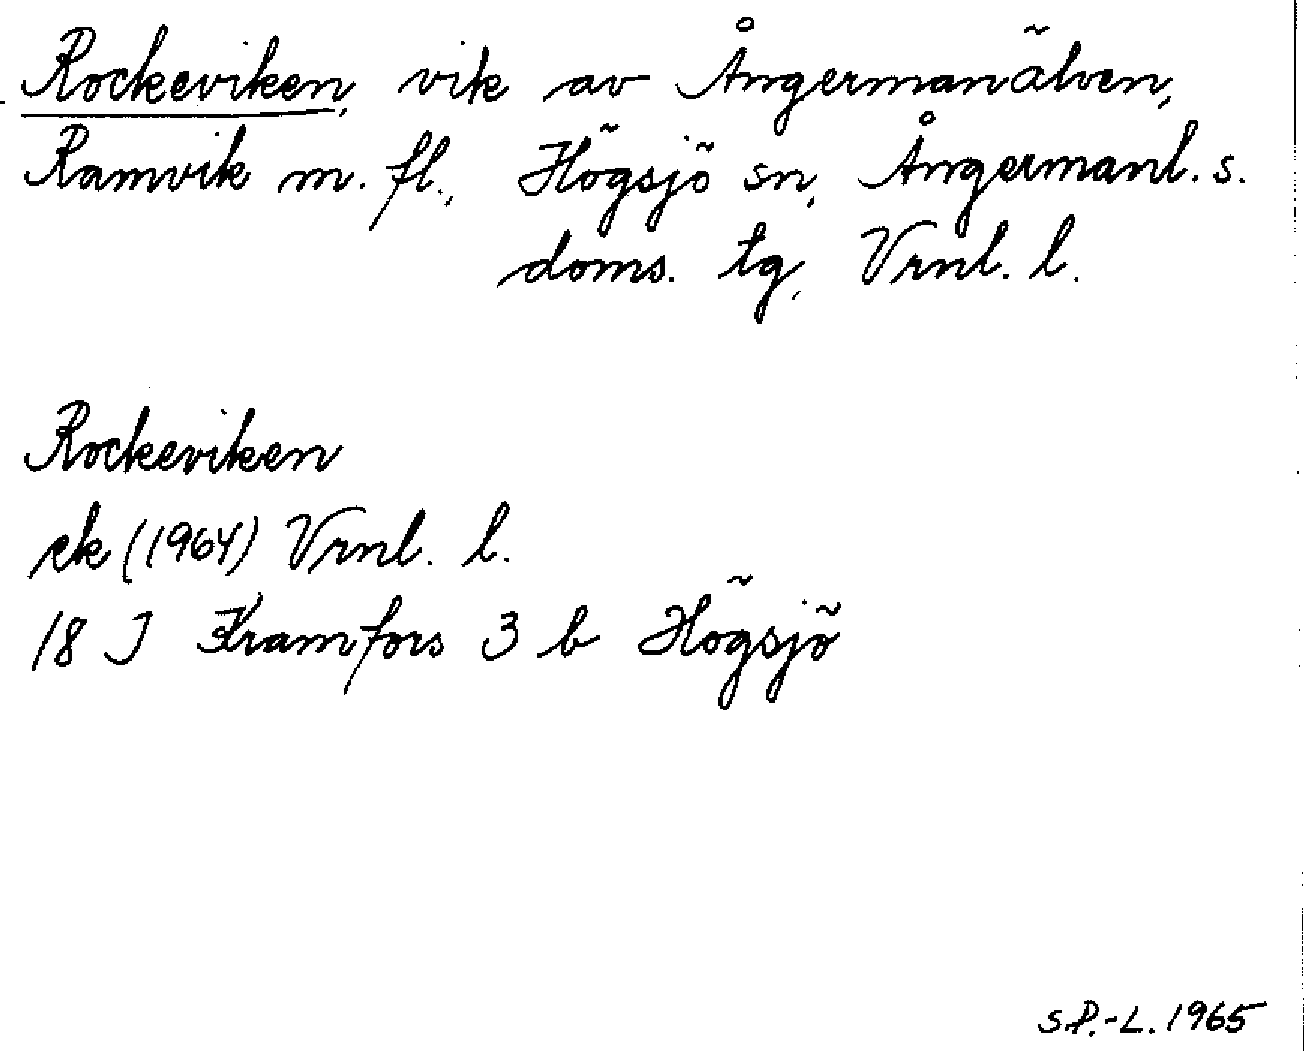 Rockeviken, vik av Ångermanälven,
Ramvik m. fl., Högsjö sn, Ångermanl. s.
doms. tg, Vrnl. l.
Rockeviken
ek (1964) Vrnl. l.
18 J Kramfors 3 b Högsjö
S.P.-L. 1965